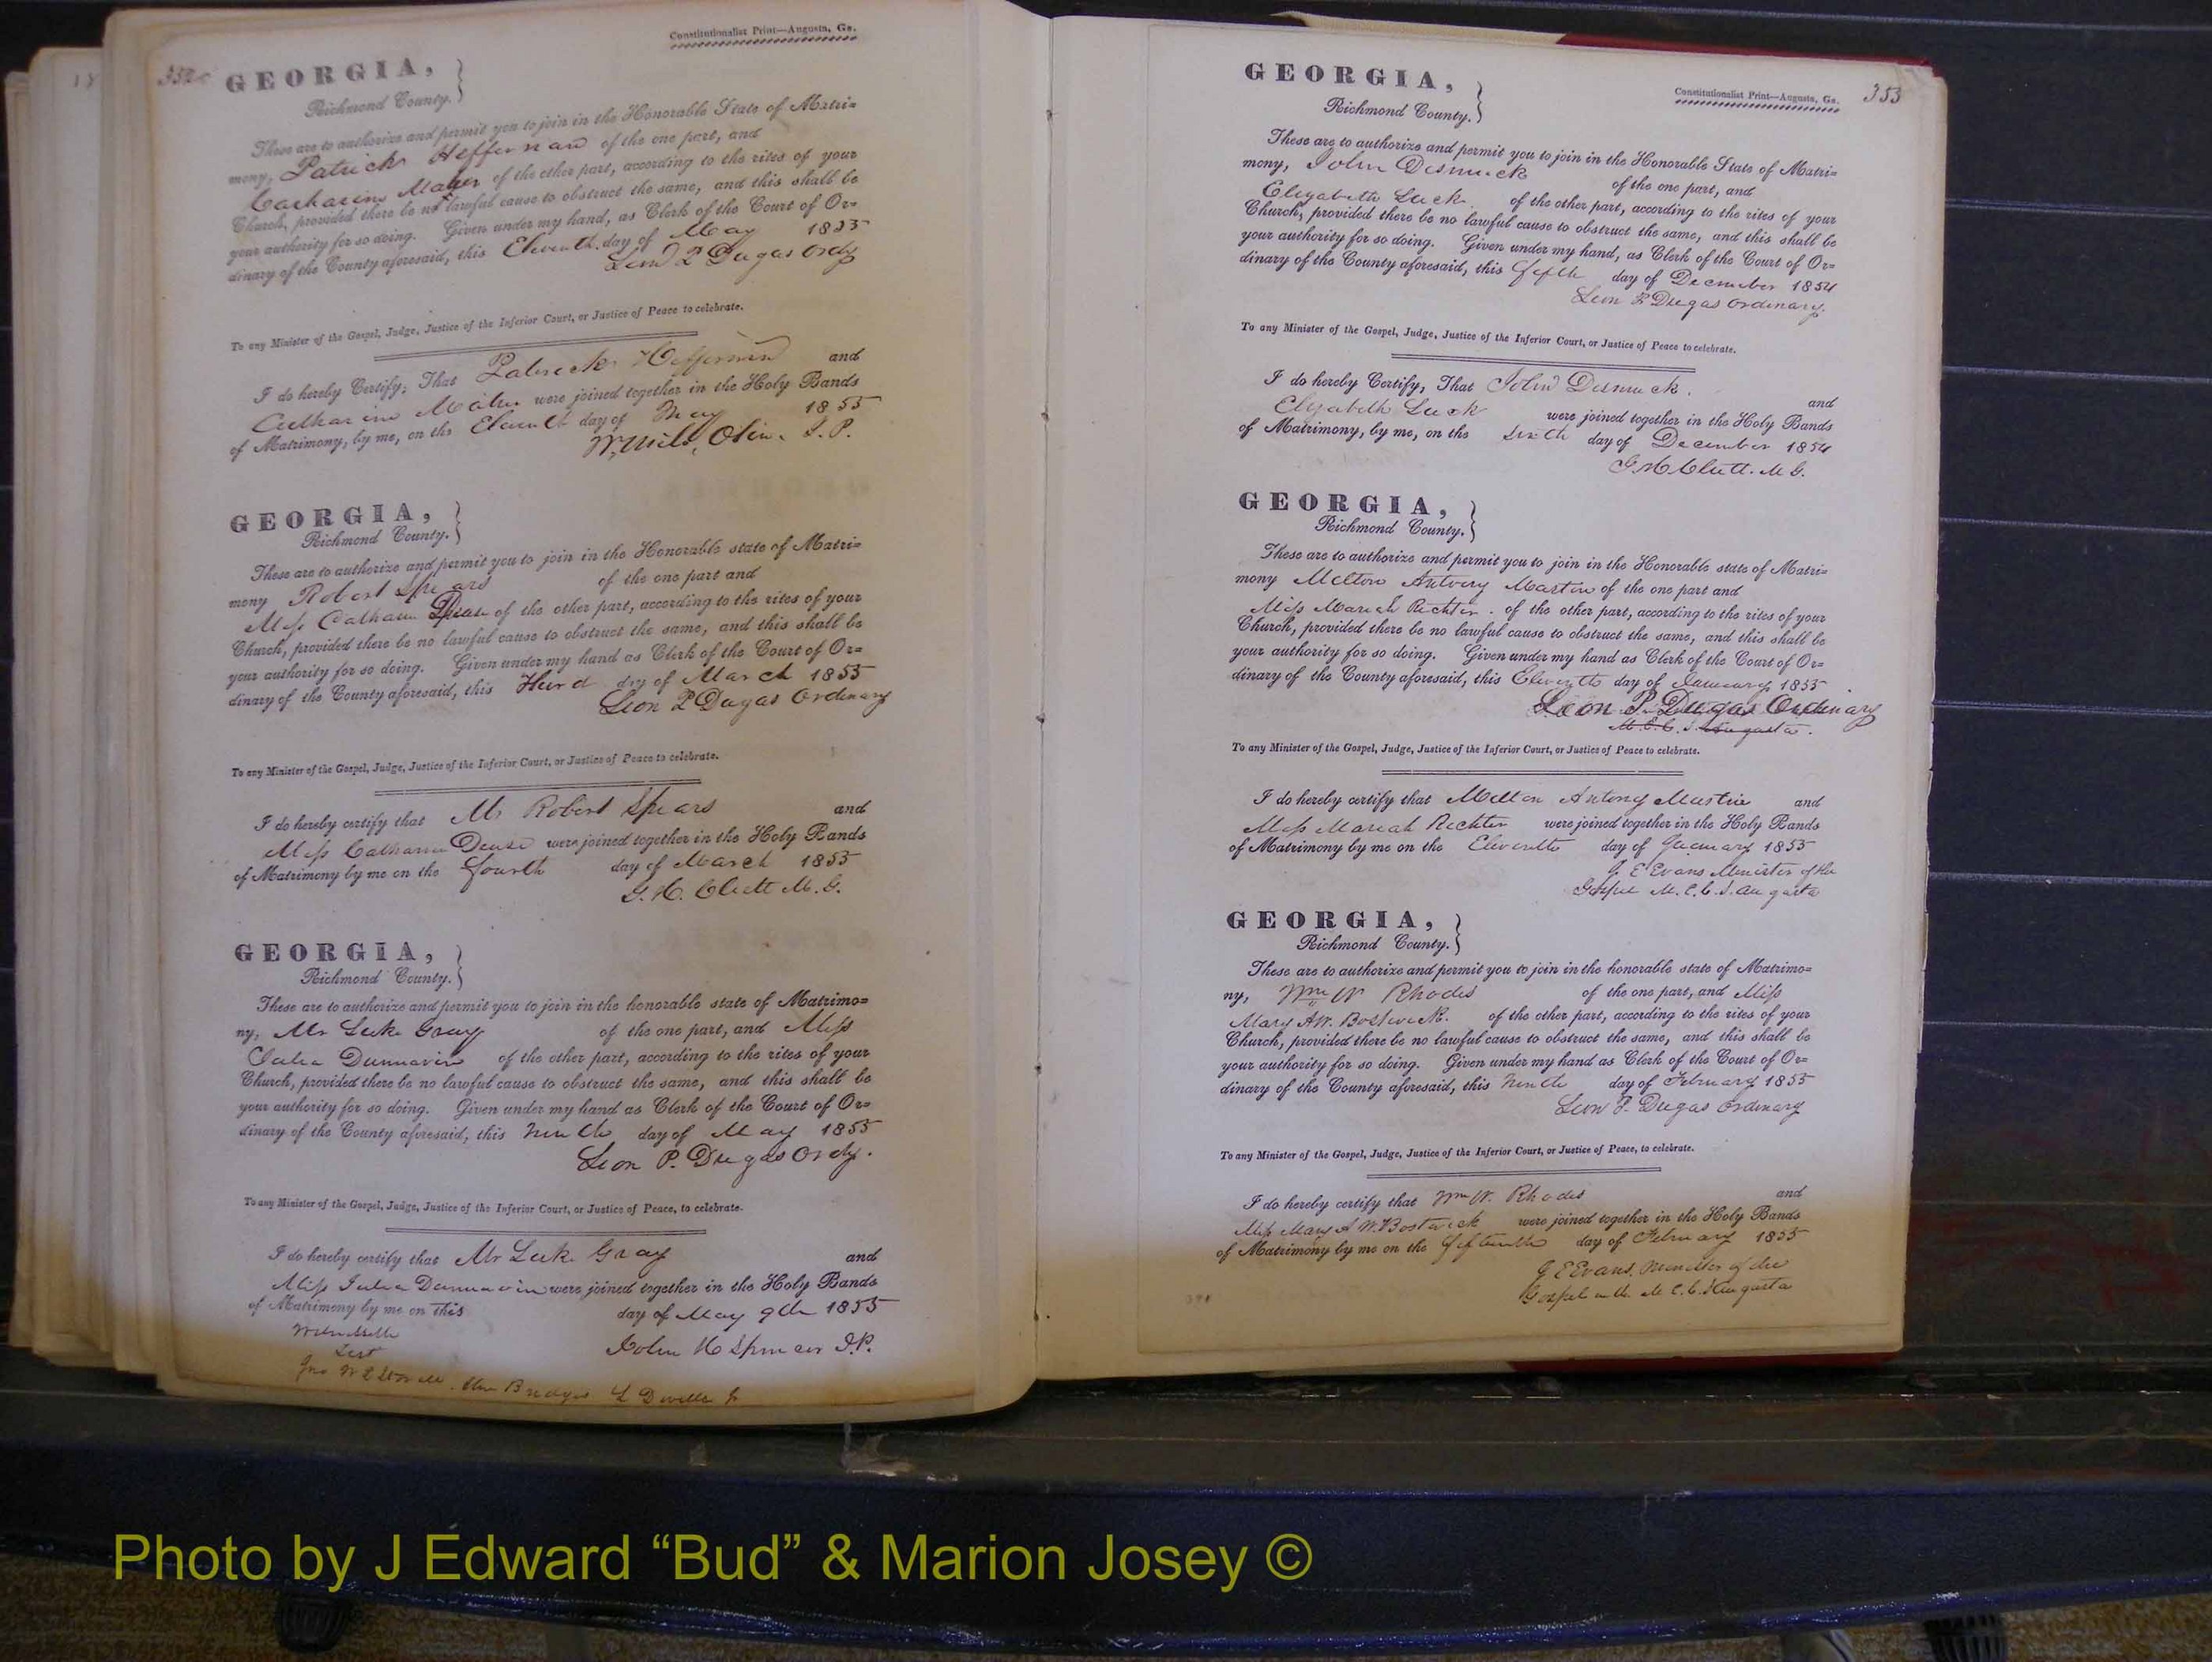 Constitutionalist Print—Augusta, Ga.
352
GEORGIA,
Richmond County.
These are to authorize and permit you to join in the Honorable State of Matri=
mony, Patrick Heffernan of the one part, and
Catharine Maher of the other part, according to the rites of your
Church, provided there be no lawful cause to obstruct the same, and this shall be
your authority for so doing. Given under my hand, as Clerk of the Court of Or=
dinary of the County aforesaid, this Eleventh day of May 1855
Leon P Dugas Ordy
To any Minister of the Gospel, Judge, Justice of the Inferior Court, or Justice of Peace to celebrate.
I do hereby Certify, That Patrick Heffernan and
Catharine Maher were joined together in the Holy Bands
of Matrimony, by me, on the Eleventh day of May 1855
Olin. J. P.
GEORGIA,
Richmond County.
These are to authorize and permit you to join in the Honorable state of Matri=
mony Robert Spears of the one part and
Miss of the other part, according to the rites of your
Church, provided there be no lawful cause to obstruct the same, and this shall be
your authority for so doing. Given under my hand as Clerk of the Court of Or=
dinary of the County aforesaid, this Third day of March 1855
Leon P Dugas Ordinary
To any Minister of the Gospel, Judge, Justice of the Inferior Court, or Justice of Peace to celebrate.
I do hereby certify that Mr Robert Spears and
Miss were joined together in the Holy Bands
of Matrimony by me on the fourth day of March 1855
G. H. Clutt M. G.
GEORGIA,
Richmond County.
These are to authorize and permit you to join in the honorable state of Matrimo=
ny, Mr Luke Gray of the one part, and Miss
Julia Dunnavin of the other part, according to the rites of your
Church, provided there be no lawful cause to obstruct the same, and this shall be
your authority for so doing. Given under my hand as Clerk of the Court of Or=
dinary of the County aforesaid, this ninth day of May 1855
Leon P. Dugas Ordy.
To any Minister of the Gospel, Judge, Justice of the Inferior Court, or Justice of Peace, to celebrate.
I do hereby certify that Mr Luke Gray and
Miss Julia Dunnavin were joined together in the Holy Bands
of Matrimony by me on this day of May 9th 1855
John H Spencer J.P.
Test
Constitutionalist Print—Augusta, Ga.
353
GEORGIA,
Richmond County.
These are to authorize and permit you to join in the Honorable State of Matri=
mony, John Desmuck of the one part, and
Elizabeth Luck of the other part, according to the rites of your
Church, provided there be no lawful cause to obstruct the same, and this shall be
your authority for so doing. Given under my hand, as Clerk of the Court of Or=
dinary of the County aforesaid, this fifth day of December 1854
Leon P Dugas Ordinary.
To any Minister of the Gospel, Judge, Justice of the Inferior Court, or Justice of Peace to celebrate.
I do hereby Certify, That John Desmuck. and
Elizabeth Luck were joined together in the Holy Bands
of Matrimony, by me, on the Sixth day of December 1854
G. H Clutt. M G.
GEORGIA,
Richmond County.
These are to authorize and permit you to join in the Honorable state of Matri=
mony Melton Antony Martin of the one part and
Miss Mariah Richter. of the other part, according to the rites of your
Church, provided there be no lawful cause to obstruct the same, and this shall be
your authority for so doing. Given under my hand as Clerk of the Court of Or=
dinary of the County aforesaid, this Eleventh day of January 1855
Leon P. Dugas Ordinary
M. E. C. S. Augusta.
To any Minister of the Gospel, Judge, Justice of the Inferior Court, or Justice of Peace to celebrate.
I do hereby certify that Melton Antony Martin and
Miss Mariah Richter were joined together in the Holy Bands
of Matrimony by me on the Eleventh day of January 1855
J E Evans Minister of the
Gospel M. E. C. S. Augusta
GEORGIA,
Richmond County.
These are to authorize and permit you to join in the honorable state of Matrimo=
ny, Wm W Rhodes of the one part, and Miss
Mary A W. Bostwick. of the other part, according to the rites of your
Church, provided there be no lawful cause to obstruct the same, and this shall be
your authority for so doing. Given under my hand as Clerk of the Court of Or=
dinary of the County aforesaid, this ninth day of February 1855
Leon P. Dugas Ordinary
To any Minister of the Gospel, Judge, Justice of the Inferior Court, or Justice of Peace, to celebrate.
I do hereby certify that Wm W. Rhodes and
Miss Mary A W. Bostwick were joined together in the Holy Bands
of Matrimony by me on the fifteenth day of February 1855
J E Evans. Minister of the
Gospel in the M. E. C. S Augusta
Photo by J Edward “Bud” & Marion Josey ©